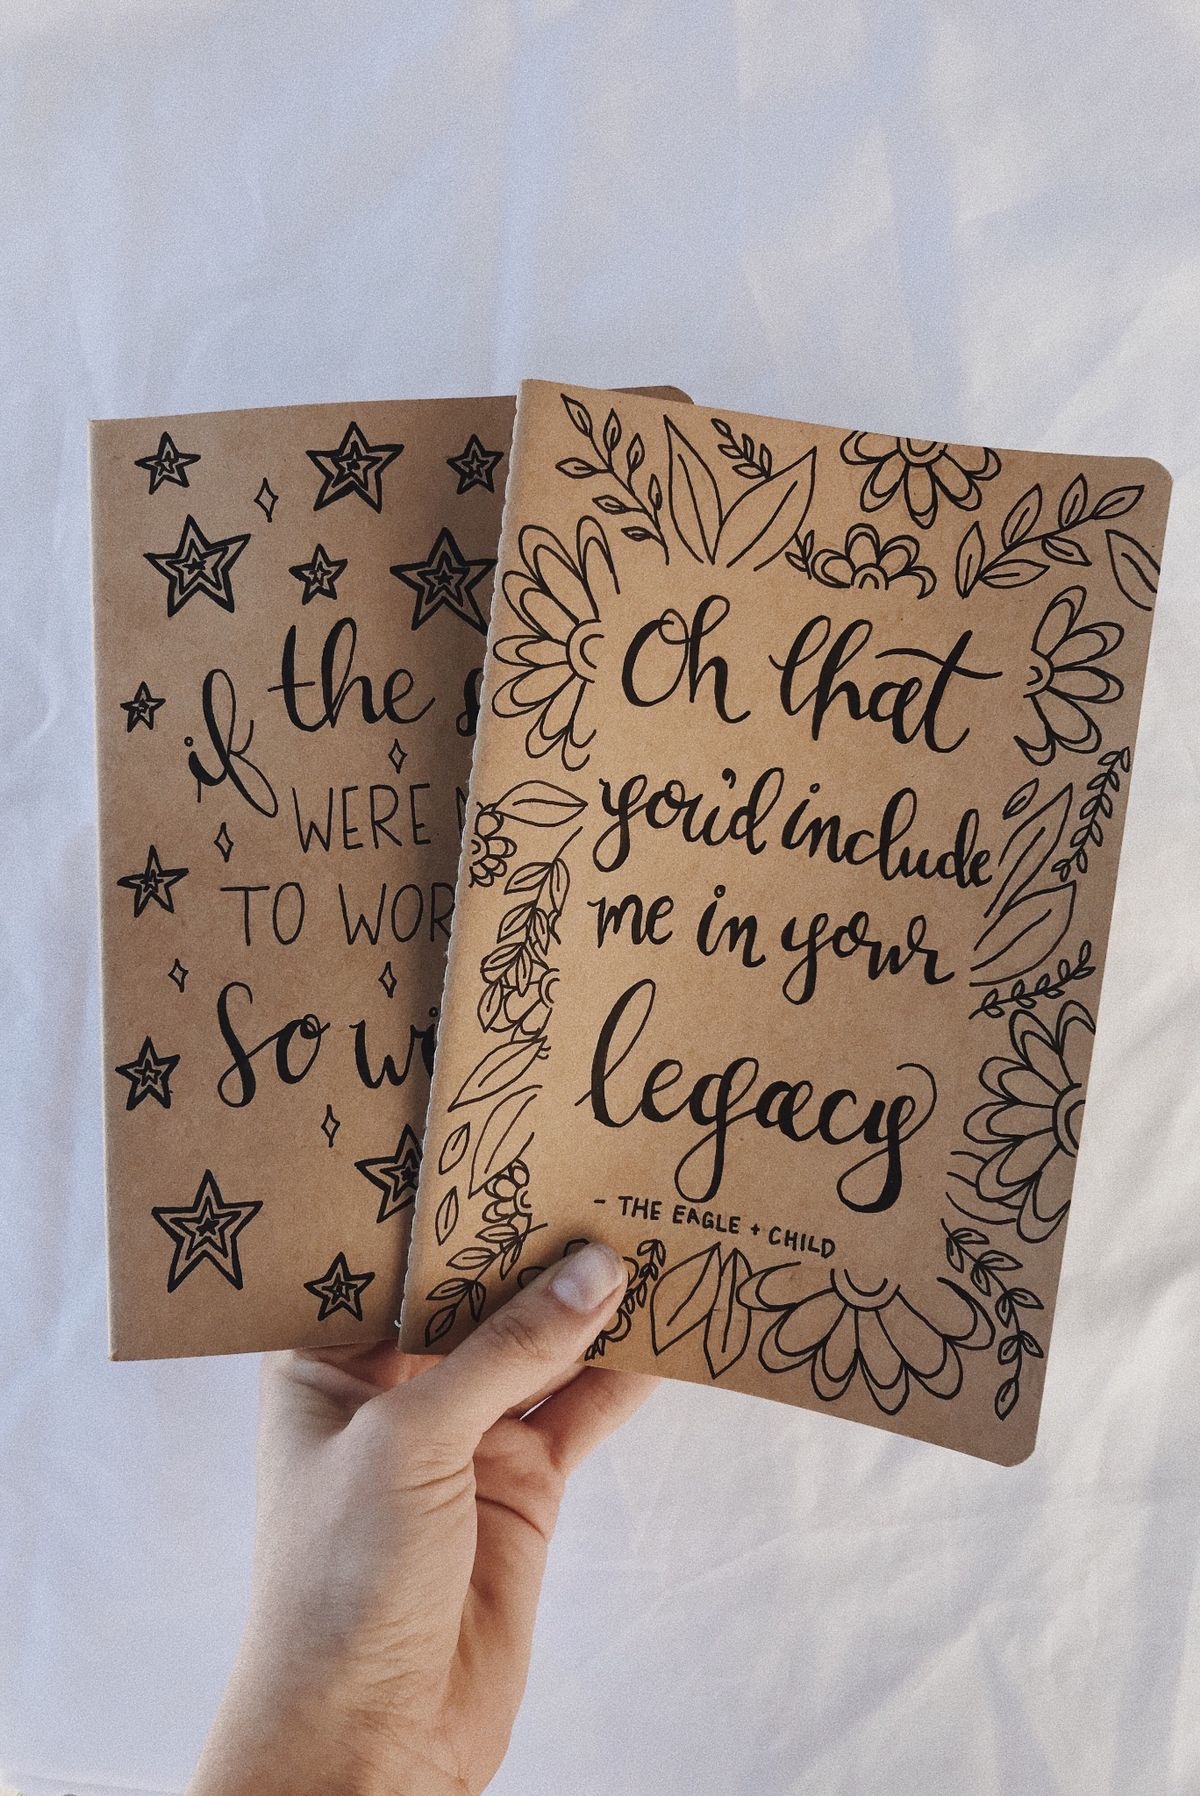 if the
WERE
TO
So
Oh that
you'd include
me in your
legacy
- THE EAGLE + CHILD